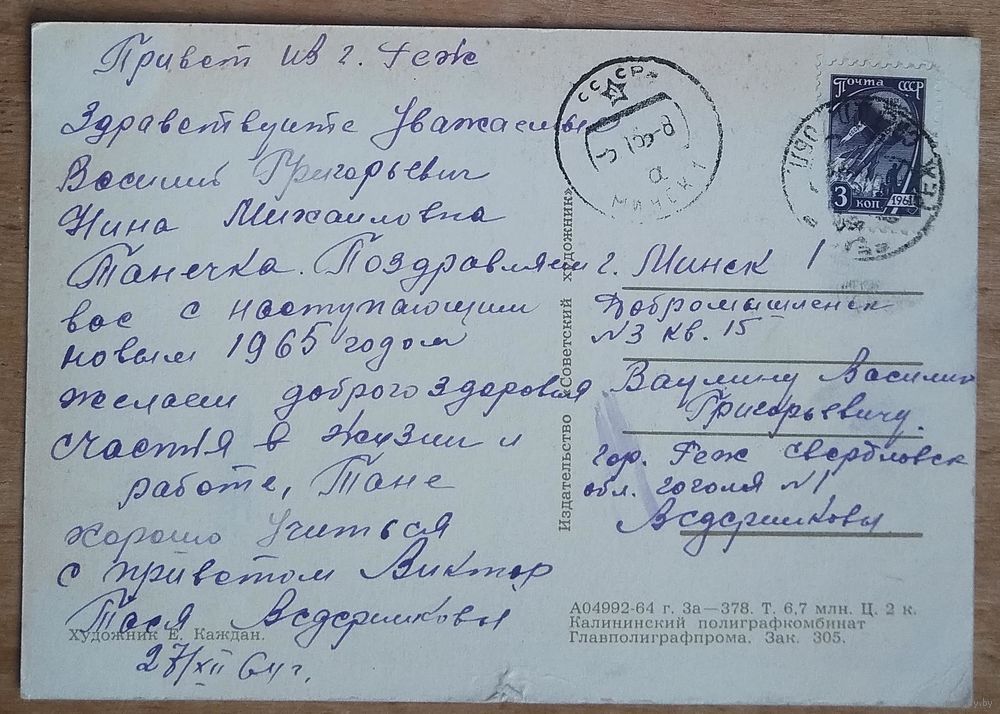 Привет из г. Реж
Здравствуите Уважаемые
Василий Григорьевич
Нина Михаиловна
Танечка. Поздравляем
вас с наступающим
новым 1965 годом
желаем доброго здоровия
счастья в жизни и
работе, Тане
хорошо учиться
с приветом Виктор
Тася
Художник Е. Каждан.
27/XII 64 г.
Издательство «Советский художник»
СССР
МИНСК 1
Почта СССР
3 КОП 1961
г. Минск 1
Добромышленск
N3 кв. 15
Ваулину Василию
Григорьевичу.
гор. Реж Свердловск
обл. гоголя N1
А04992-64 г. За—378. Т. 6,7 млн. Ц. 2 к.
Калининский полиграфкомбинат
Главполиграфпрома. Зак. 305.